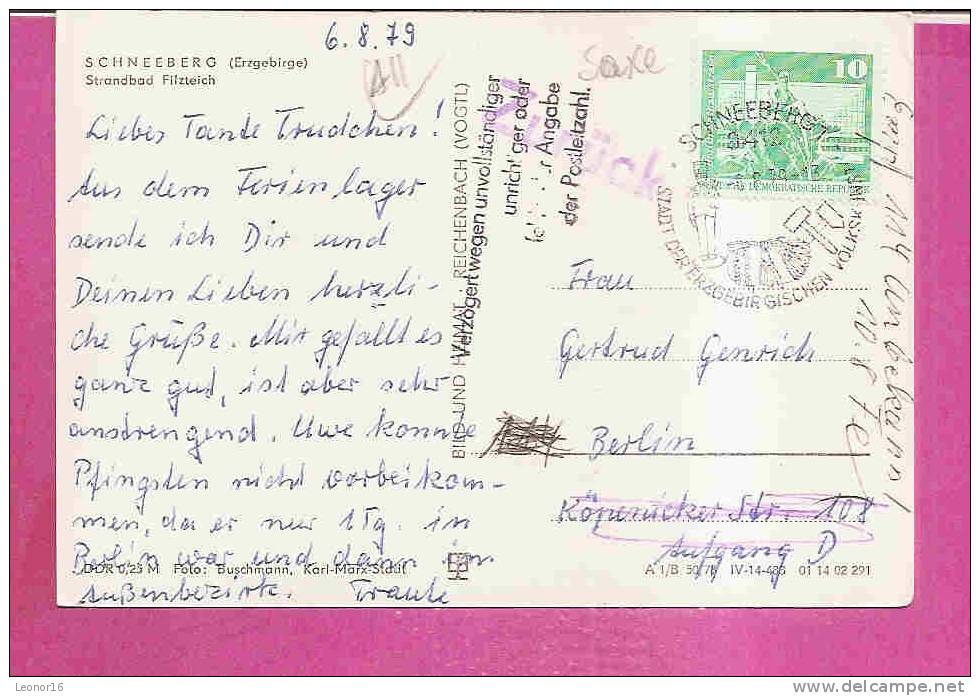 6.8.79
SCHNEEBERG (Erzgebirge)
Strandbad Filzteich
Liebes Tante Trudchen!
Aus dem Ferienlager
sende ich Dir und
Deinen Lieben herzli-
che Grüße. Mir gefällt es
ganz gut, ist aber sehr
anstrengend. Uwe konnte
Pfingsten nicht vorbeikom-
men, da er nur 1 Tg. in
Berlin war und dann im
Außenbezirk. Traute
DDR 0,25 M Foto: Buschmann, Karl-Marx-Stadt
BILD UND HEIMAT · REICHENBACH (VOGTL)
Verzögert wegen unvollständiger
unricht ger oder
fe r Angabe
der Postleitzahl.
Zurück
Saxe
10
DEMOKRATISCHE REPUBLIK
SCHNEEBERG 1
STADT DER ERZGEBIRGISCHEN VOLKSKUNST
Frau
Gertrud Genrich
Berlin
Köpenicker Str. 108
Aufgang D
A 1/B 50/78 IV-14-483 01 14 02 291
114 unbekannt
10.8
Leonor16
delcampe.net